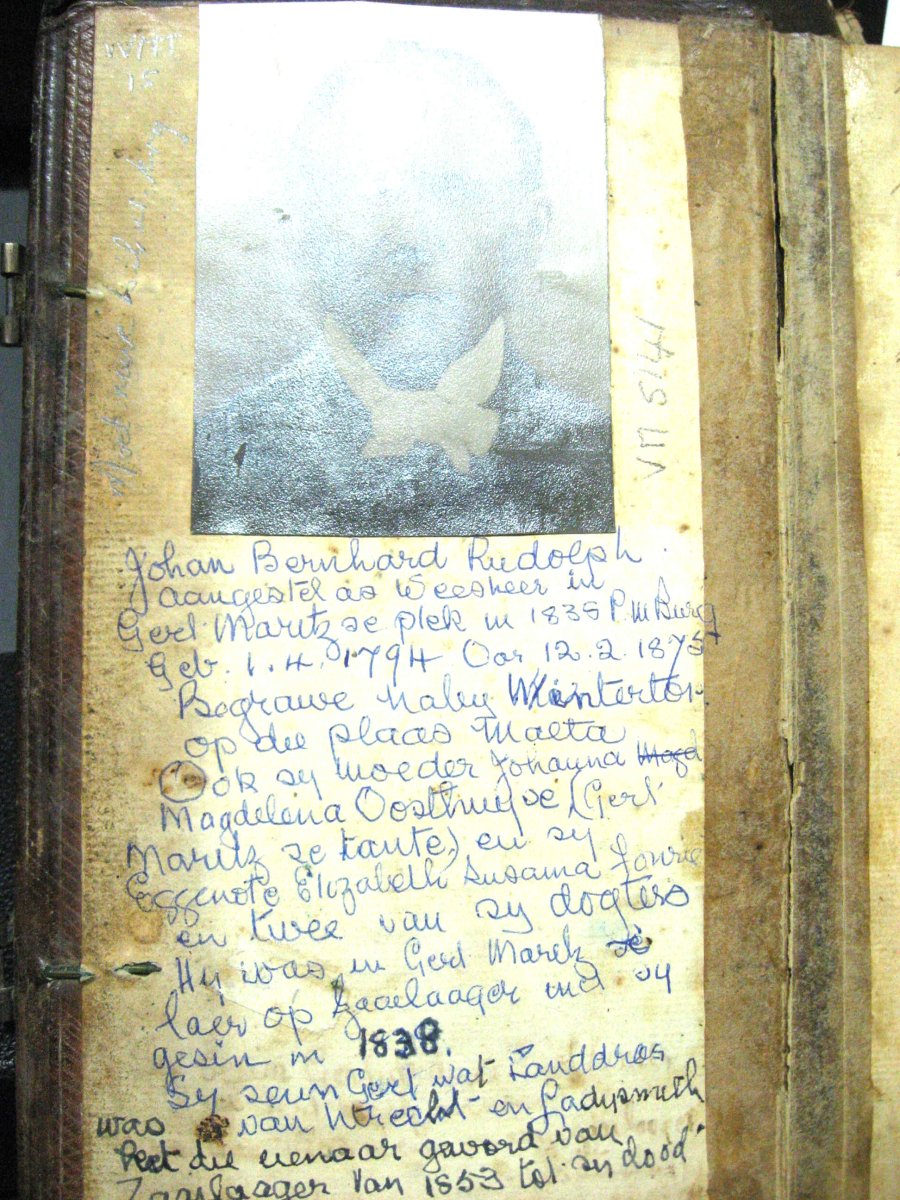 VM 5141
Johan Bernhard Rudolph.
aangestel as Weesheer in
Gert Maritz se plek in 1838 P.M Burg
Geb. 1.4.1794 Oor 12.2.1875
Begrawe naby Winterton
op die plaas Malta
Ook sy moeder Johanna Magd
Magdelena Oosthuyse (Gert
Maritz se tante) en sy
Eggenote Elizabeth Susanna Fourie
en twee van sy dogters
Hy was in Gert Maritz se
laer op Zaailaager met sy
gesin in 1838.
Sy seun Gert wat Landdros
was van Utrecht en Ladysmith
het die eienaar geword van
Zaailaager van 1853 tot sy dood